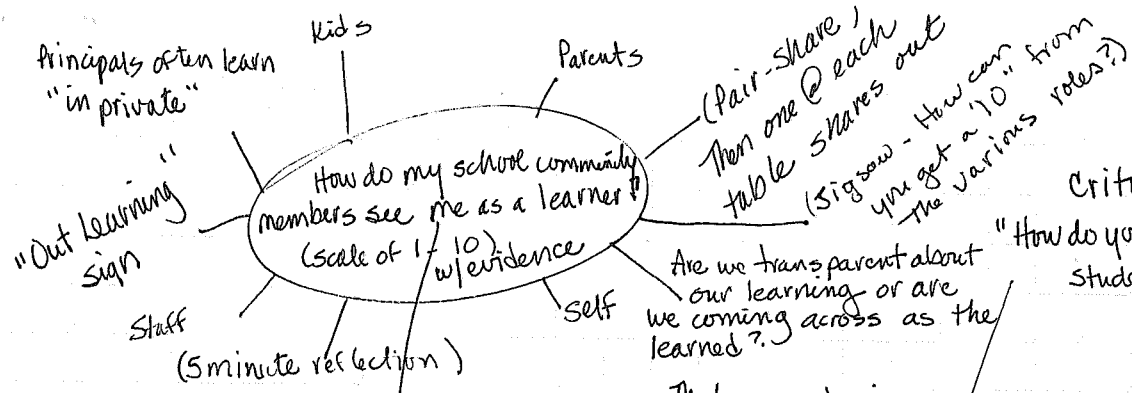 Kids
Principals often learn
"in private"
Parents
(Pair-share,
Then one @ each
table shares out
(Jigsaw - How can
you get a "10" from
the various roles?)
How do my school community
members see me as a learner?
(scale of 1-10)
w/evidence
"Out Learning"
sign
Staff
(5 minute reflection)
Self
Are we transparent about
our learning or are
we coming across as the
learned?
"How do